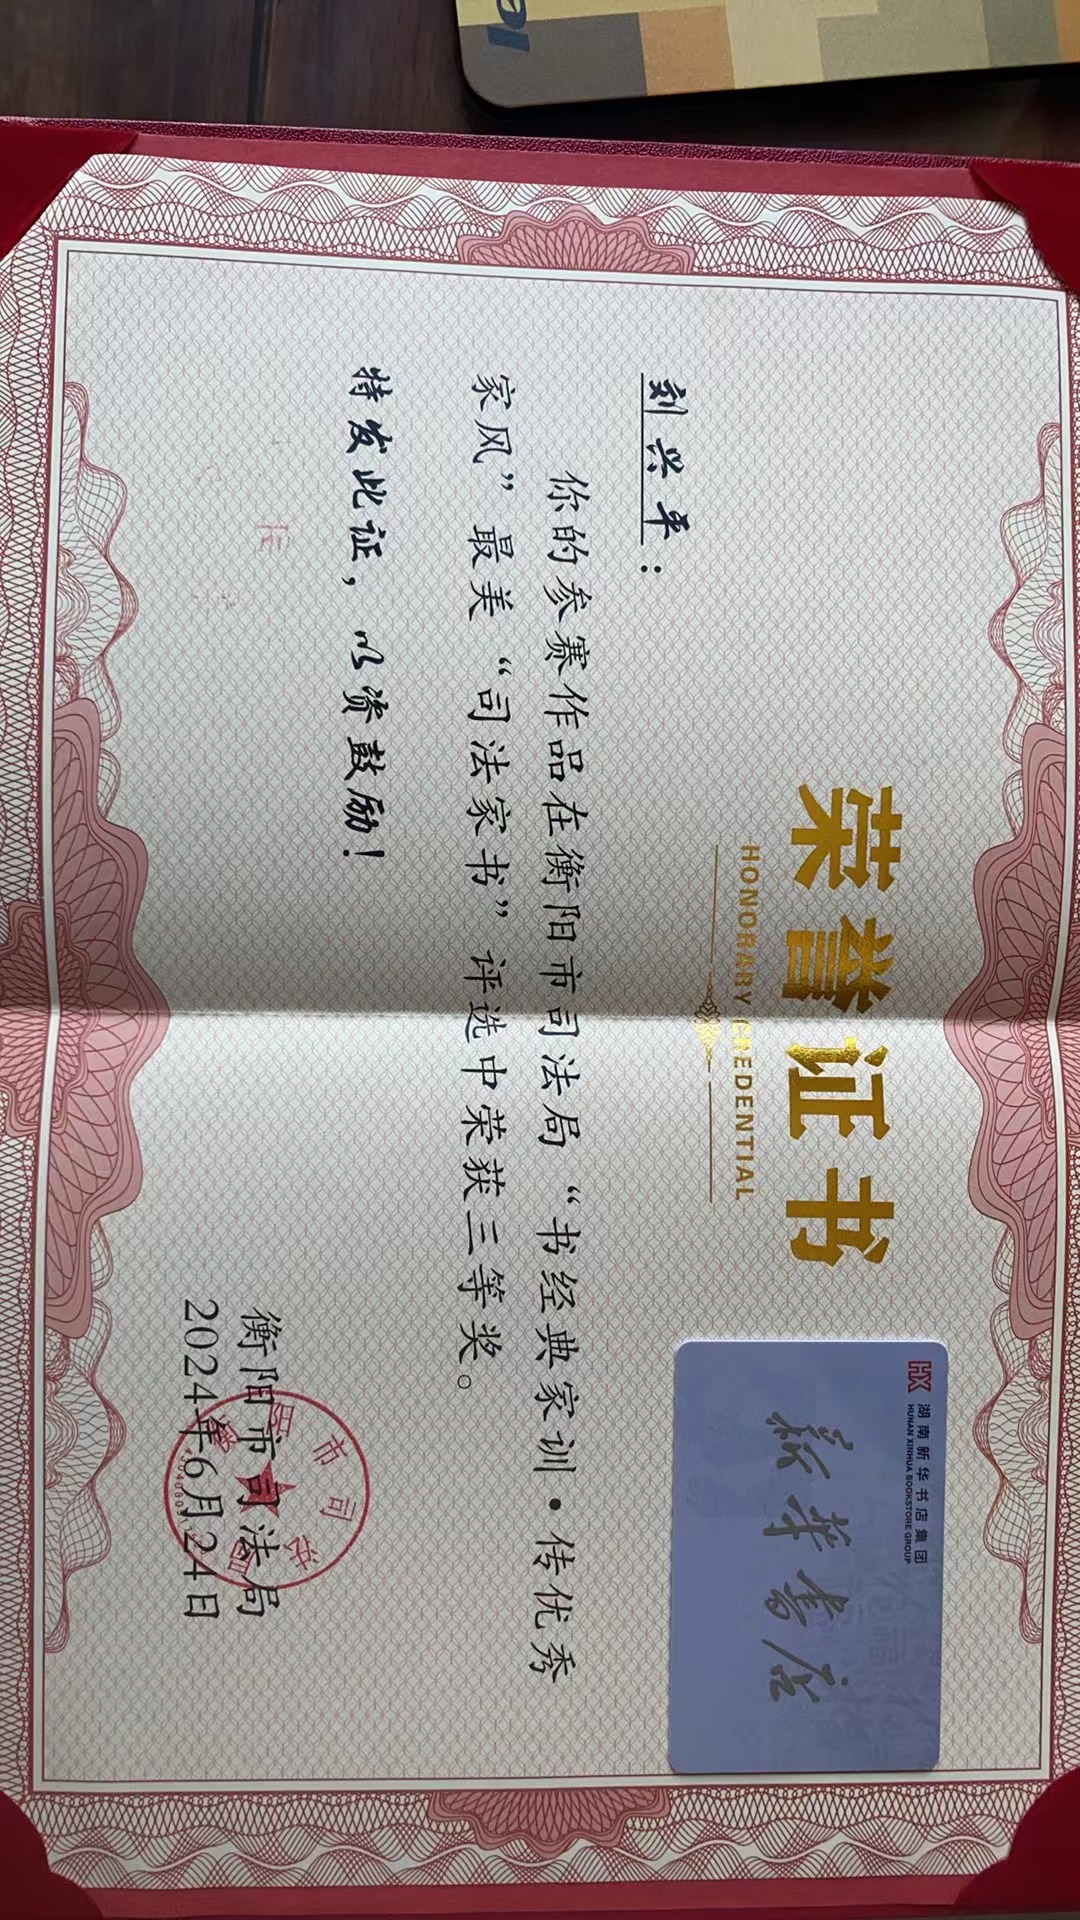 荣誉证书
HONORARY CREDENTIAL
HX 湖南新华书店集团
HUNAN XINHUA BOOKSTORE GROUP
新华书店
刘兴平：
你的参赛作品在衡阳市司法局“书经典家训·传优秀
家风”最美“司法家书”评选中荣获三等奖。
特发此证，以资鼓励！
衡阳市司法局
2024年6月24日